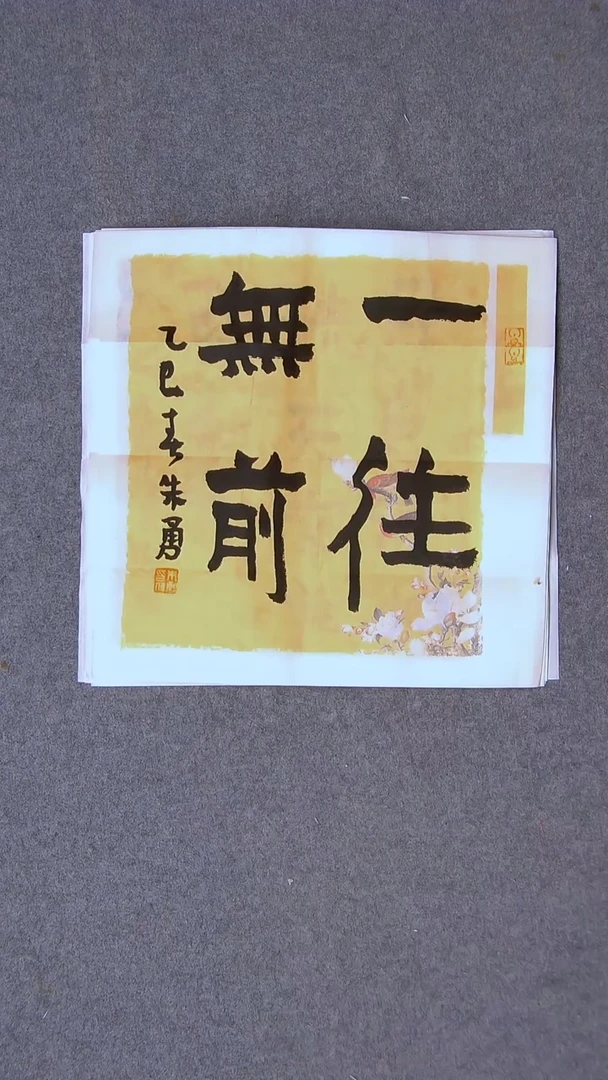 一往
無前
乙巳春朱勇